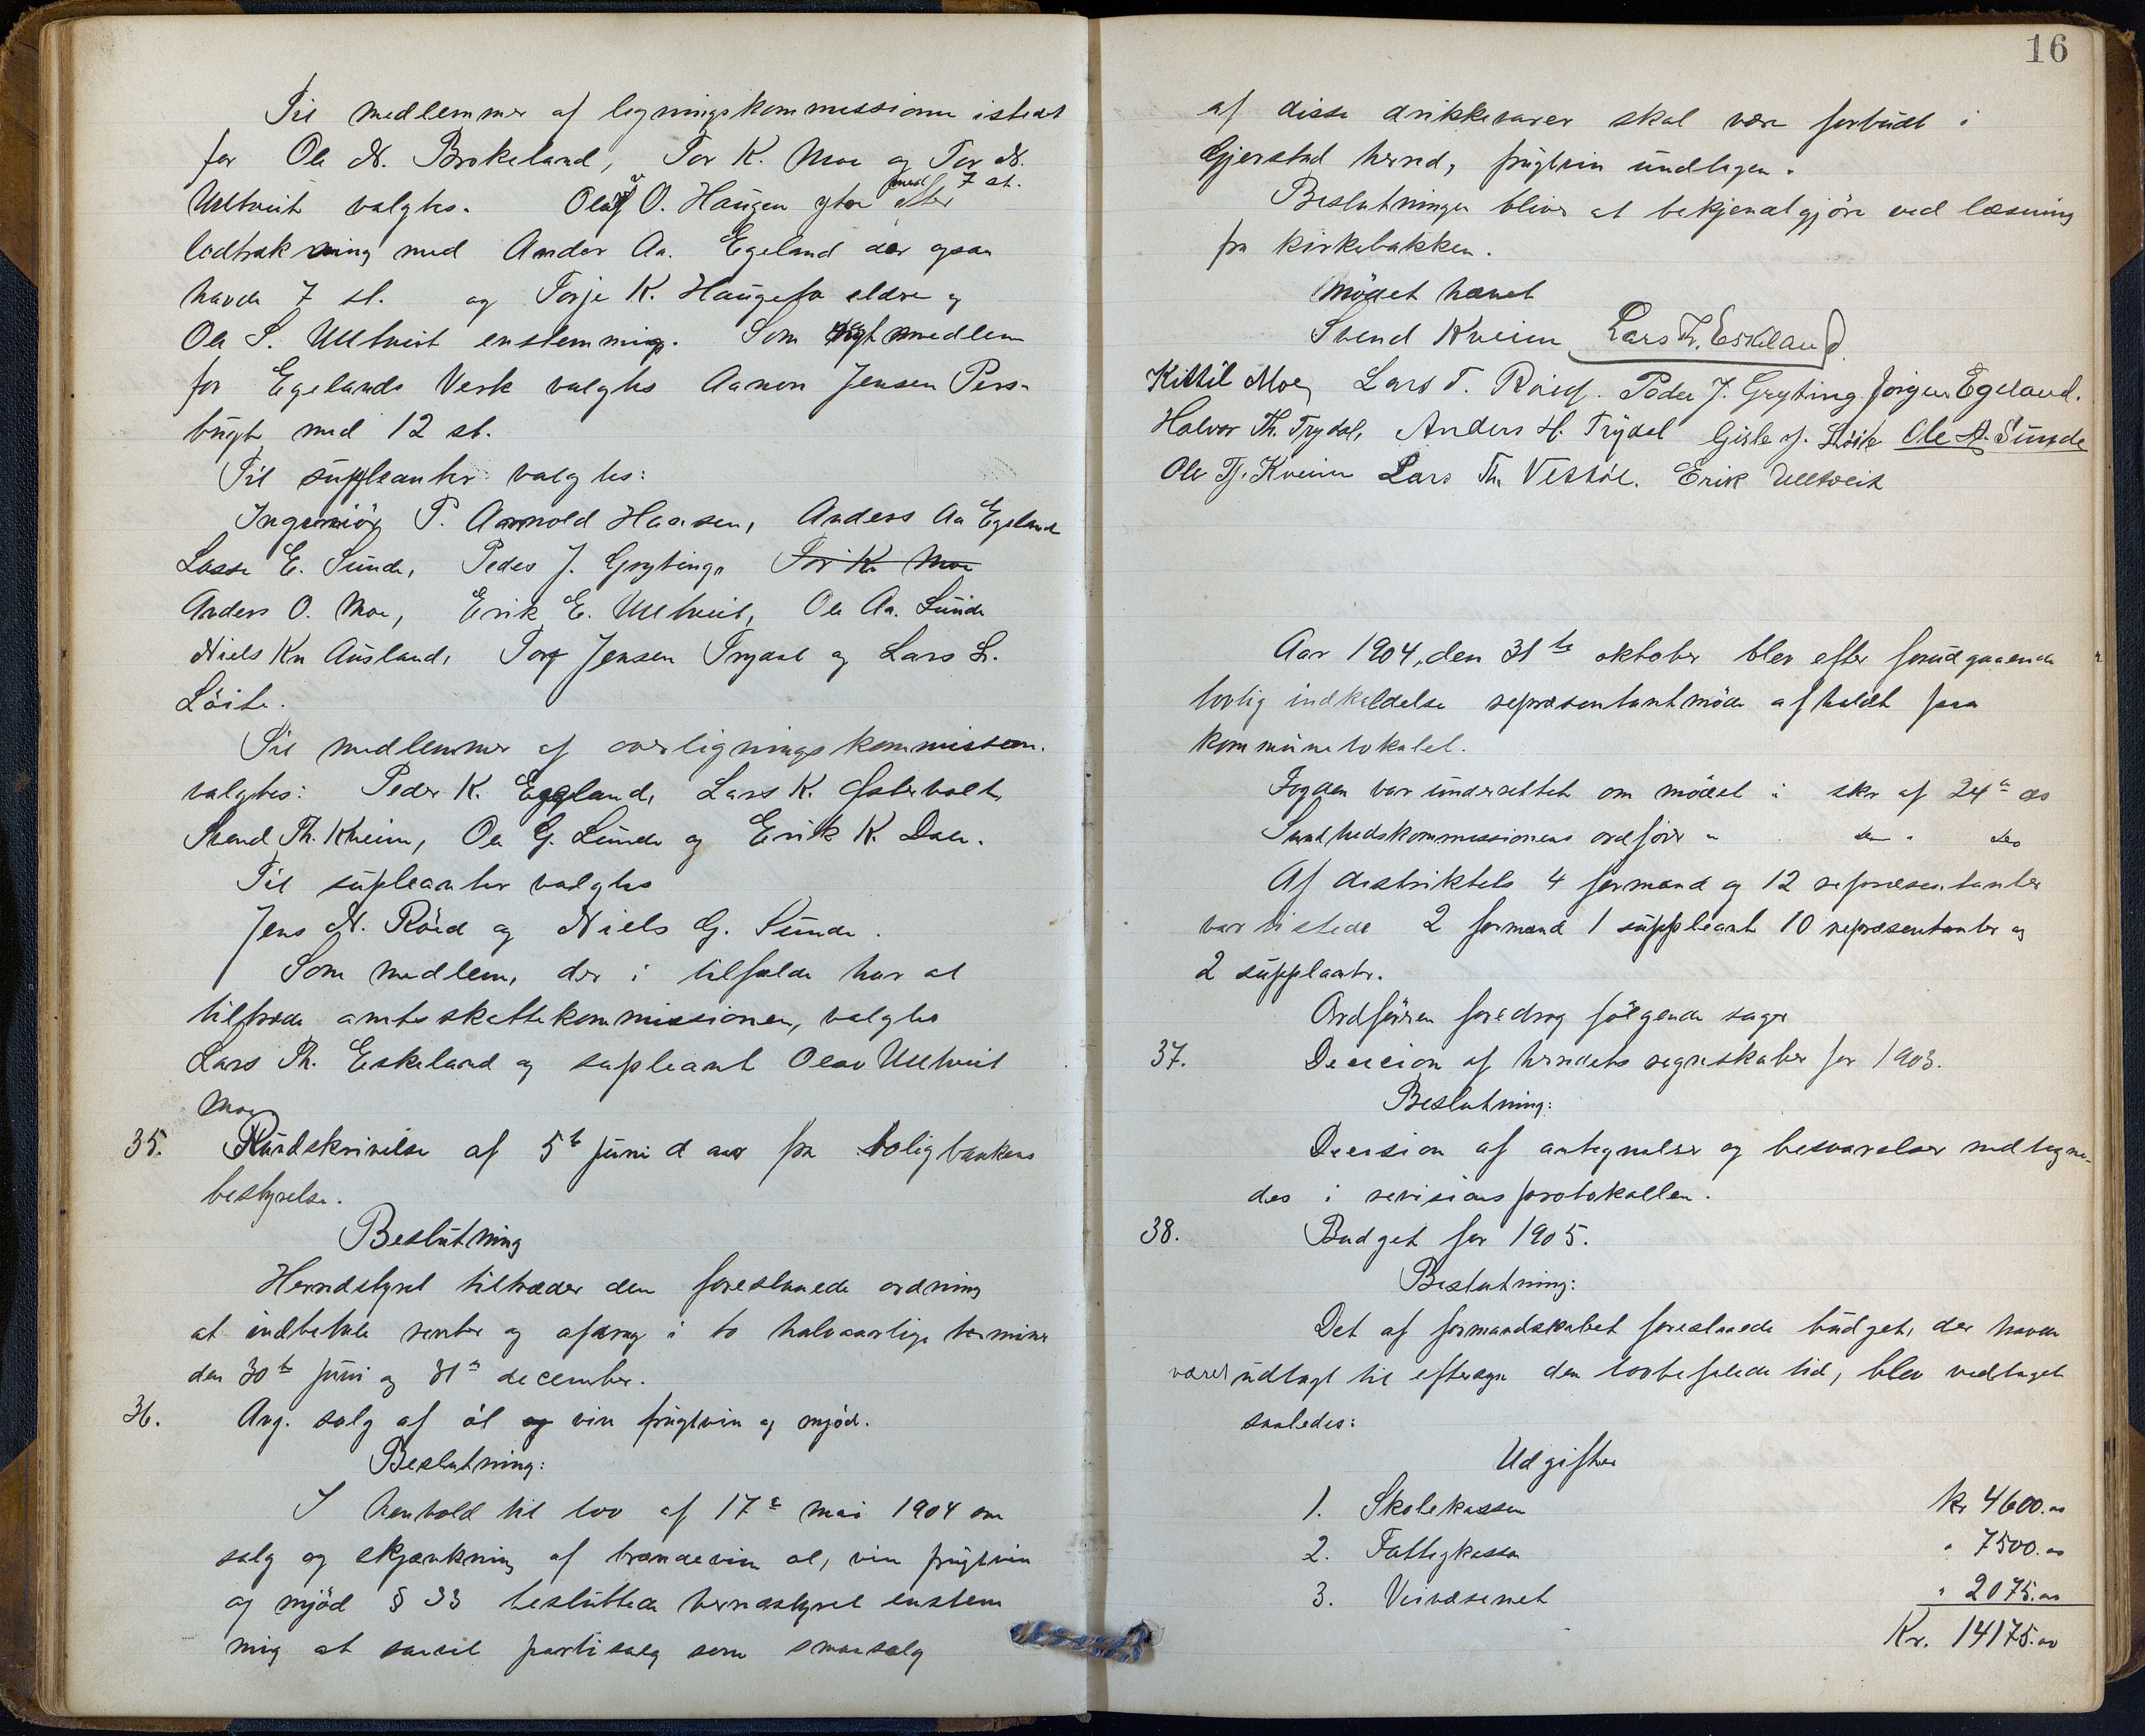 Til medlemmer af ligningskommissionen istedet
for Ole N. Brokeland, Tor K. Moe og Tor N.
Ulltveit valgtes. Olav O. Haugen ytre med 7 st. efter
lodtrækning med Anders Aa. Egeland der ogsaa
havde 7 st. og Torje K. Haugeto eldre og
Ole S. Ulltveit enstemmig. Som medlem
for Egelands Verk valgtes Aanon Jensen Pers-
bugt med 12 st.
Til suppleanter valgtes:
Ingeniör P. Arnold Haasen, Anders Aa Egeland
Lasse E. Sunde, Peder J. Gryting, Tor K. Moe
Anders O. Moe, Erik E. Ulltveit, Ole Aa. Sunde
Niels Kn Ausland, Jensen Trydal og Lars L.
Löite.
Til medlemmer af overligningskommissionen.
valgtes: Peder K. Eggland, Lars K. Østerholt,
Svend Th. Kveim, Ole G. Sunde og Erik K. Dale.
Til supleanter valgtes
Jens N. Röed og Niels G. Sunde.
Som medlem, der i tilfælde har at
tiltræde amtsskattekommissionen, valgtes
Lars Th. Eskeland og supleant Olav Ulltveit
Moe
35. Rundskrivelse af 5te juni d aar fra boligbankens
bestyrelse.
Beslutning
Herredstyret tiltræder den foreslaaede ordning
at indbetale renter og afdrag i to halvaarlige terminer
den 30te juni og 31te december.
36. Ang. salg af öl og vin frugtvin og mjöd.
Beslutning:
I henhold til lov af 17de mai 1904 om
salg og skjænkning af brændevin öl, vin frugtvin
og mjöd § 33 besluttede herredstyret enstem
mig at saavel partisalg som smaasalg
16
af disse drikkevarer skal være forbudt i
Gjerstad herred, frugtvin undtagen.
Beslutningen bliver at bekjendtgjöre ved læsning
fra kirkebakken.
Mödet hævet
Svend Kveim Lars Th. Eskeland
Kittil Moe, Lars T. Röed. Peder J. Gryting. Jörgen Egeland.
Halvor Th. Trydal, Anders H. Trydal Gisle J. Löite Ole A. Sunde
Ole Tj. Kveim Lars Th. Vestöl. Erik Ulltveit
Aar 1904, den 31te oktober blev efter forudgaaende
lovlig indkaldelse repræsentantmöde afholdt paa
kommunelokalet.
Fogden var underrettet om mödet i skr af 24de ds
Sundhedskommissionens ordförer " " ds
Af distriktets 4 formænd og 12 repræsentanter
var tilstede 2 formænd 1 suppleant 10 repræsentanter og
2 suppleanter.
Ordföreren foredrog fölgende sager
37. Decision af herredets regnskaber for 1903.
Beslutning:
Decision af antegnelser og besvarelser nedtegne-
des i revisionsprotokollen.
38. Budget for 1905.
Beslutning:
Det af formandskabet foreslaaede budget, der havde
været udlagt til eftersyn den lovbefalede tid, blev vedtaget
saaledes:
Udgifter
1. Skolekassen kr 4600.00
2. Fattigkassen " 7500.00
3. Veivæsenet " 2075.00
Kr. 14175.00